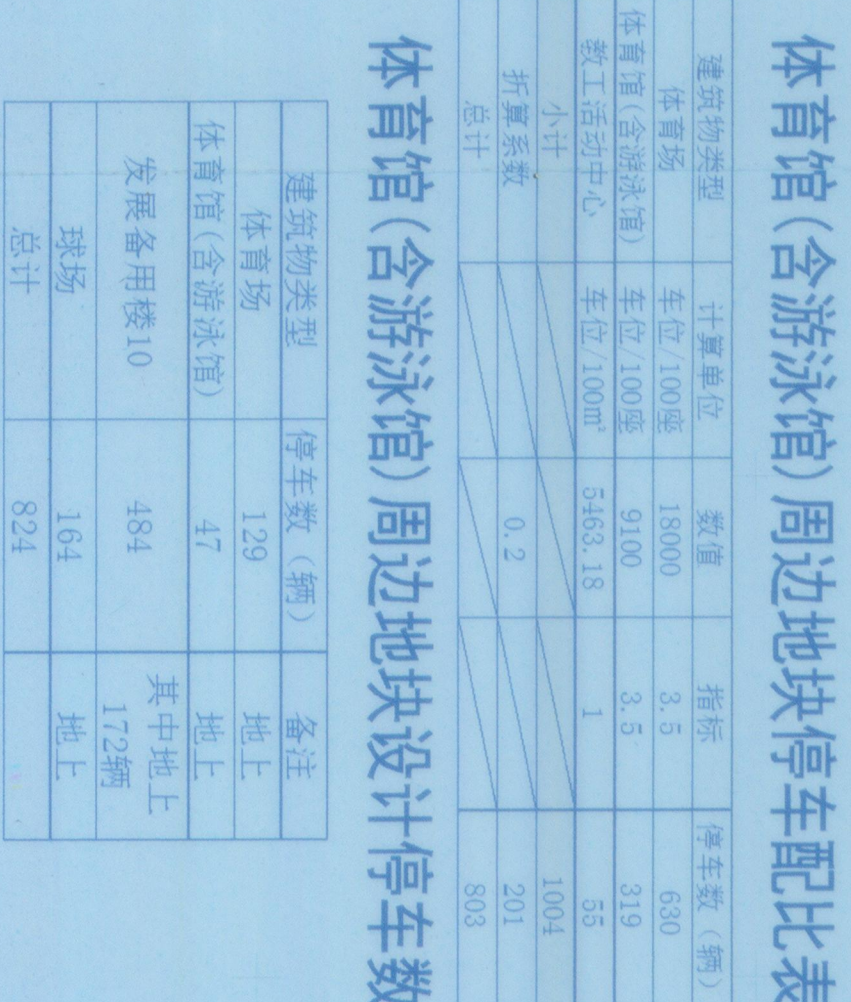 体育馆(含游泳馆)周边地块停车配比表
建筑物类型 计算单位 数值 指标 停车数（辆）
体育场 车位/100座 18000 3.5 630
体育馆(含游泳馆) 车位/100座 9100 3.5 319
教工活动中心 车位/100㎡ 5463.18 1 55
小计 1004
折算系数 0.2 201
总计 803
体育馆(含游泳馆)周边地块设计停车数
建筑物类型 停车数（辆） 备注
体育场 129 地上
体育馆(含游泳馆) 47 地上
发展备用楼10 484 其中地上
172辆
球场 164 地上
总计 824